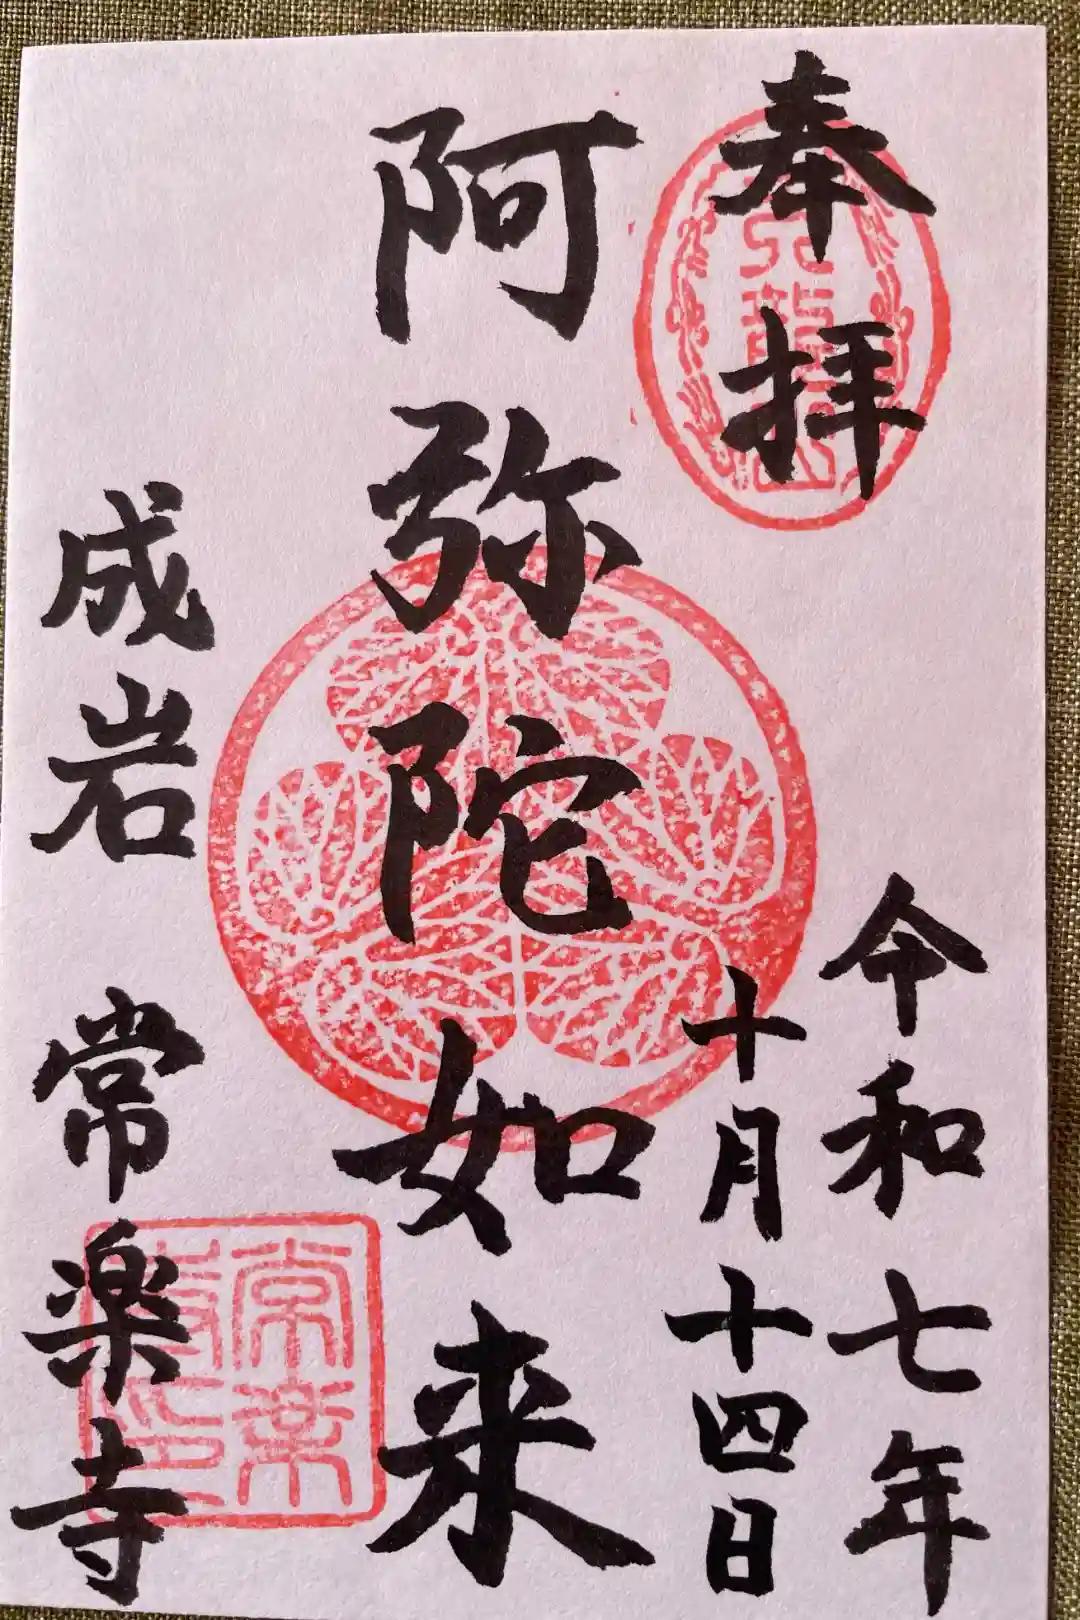 奉拝
令和七年
十月十四日
阿弥陀如来
成岩 常楽寺
天龍山
常楽寺印